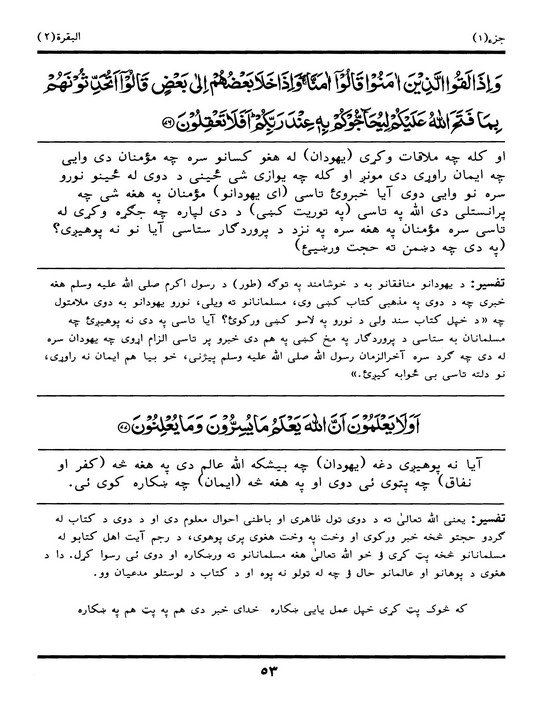 جزء(۱) البقرة(۲)
وَإِذَا لَقُوا الَّذِيْنَ اٰمَنُوْا قَالُوْٓا اٰمَنَّا ۖ وَإِذَا خَلَا بَعْضُهُمْ إِلٰى بَعْضٍ قَالُوْٓا اَتُحَدِّثُوْنَهُمْ
بِمَا فَتَحَ اللّٰهُ عَلَيْكُمْ لِيُحَآجُّوْكُمْ بِهٖ عِنْدَ رَبِّكُمْ ۗ اَفَلَا تَعْقِلُوْنَ ﴿۷۶﴾
او کله چه ملاقات وکړي (یهودان) له هغو کسانو سره چه مؤمنان دي وایي
چه ایمان راوړی دی مونږ او کله چه یوازی شي ځیني د دوی له ځینو نورو
سره نو وایي دوی آیا خبروئ تاسی (ای یهودانو) مؤمنان په هغه شي چه
پرانستلی دی الله په تاسی (په توریت کښی) د دی لپاره چه جګړه وکړي له
تاسی سره مؤمنان په هغه سره په نزد د پروردګار ستاسي آیا نو نه پوهیږی؟
(په دی چه دښمن ته حجت ورښیئ)
تفسیر: د یهودانو منافقانو به د خوشامند په توګه (طور) د رسول اکرم صلی الله علیه وسلم هغه
خبری چه د دوی په مذهبي کتاب کښی وی، مسلمانانو ته ویلی، نورو یهودانو به دوی ملامتول
چه «د خپل کتاب سند ولی د نورو په لاسو کښی ورکوئ؟ آیا تاسی په دی نه پوهیږئ چه
مسلمانان به ستاسي د پروردګار په مخ کښی په هم دی خبرو پر تاسی الزام اړوي چه یهودان سره
له دی چه ګرد سره آخرالزمان رسول الله صلی الله علیه وسلم پیژني، خو بیا هم ایمان نه راوړي،
نو دلته تاسی بی ځوابه کیږئ.»
اَوَلَا يَعْلَمُوْنَ اَنَّ اللّٰهَ يَعْلَمُ مَا يُسِرُّوْنَ وَمَا يُعْلِنُوْنَ ﴿۷۷﴾
آیا نه پوهیږي دغه (یهودان) چه بیشکه الله عالم دی په هغه څه (کفر او
نفاق) چه پتوي ئی دوی او په هغه څه (ایمان) چه ښکاره کوي ئی.
تفسیر: یعنی الله تعالیٰ ته د دوی ټول ظاهري او باطني احوال معلوم دي او د دوی د کتاب له
ګردو حجتو څخه خبر ورکوي او وخت په وخت هغوی پری پوهوي، د رجم آیت اهل کتابو له
مسلمانانو څخه پټ کړی ؤ خو الله تعالیٰ هغه مسلمانانو ته ورښکاره او دوی ئی رسوا کړل. دا د
هغوی د پوهانو او عالمانو حال ؤ چه له ټولو نه پوه او د کتاب د لوستلو مدعیان وو.
که څوک پټ کړي خپل عمل یایی ښکاره خدای خبر دی هم په پټ هم په ښکاره
۵۳